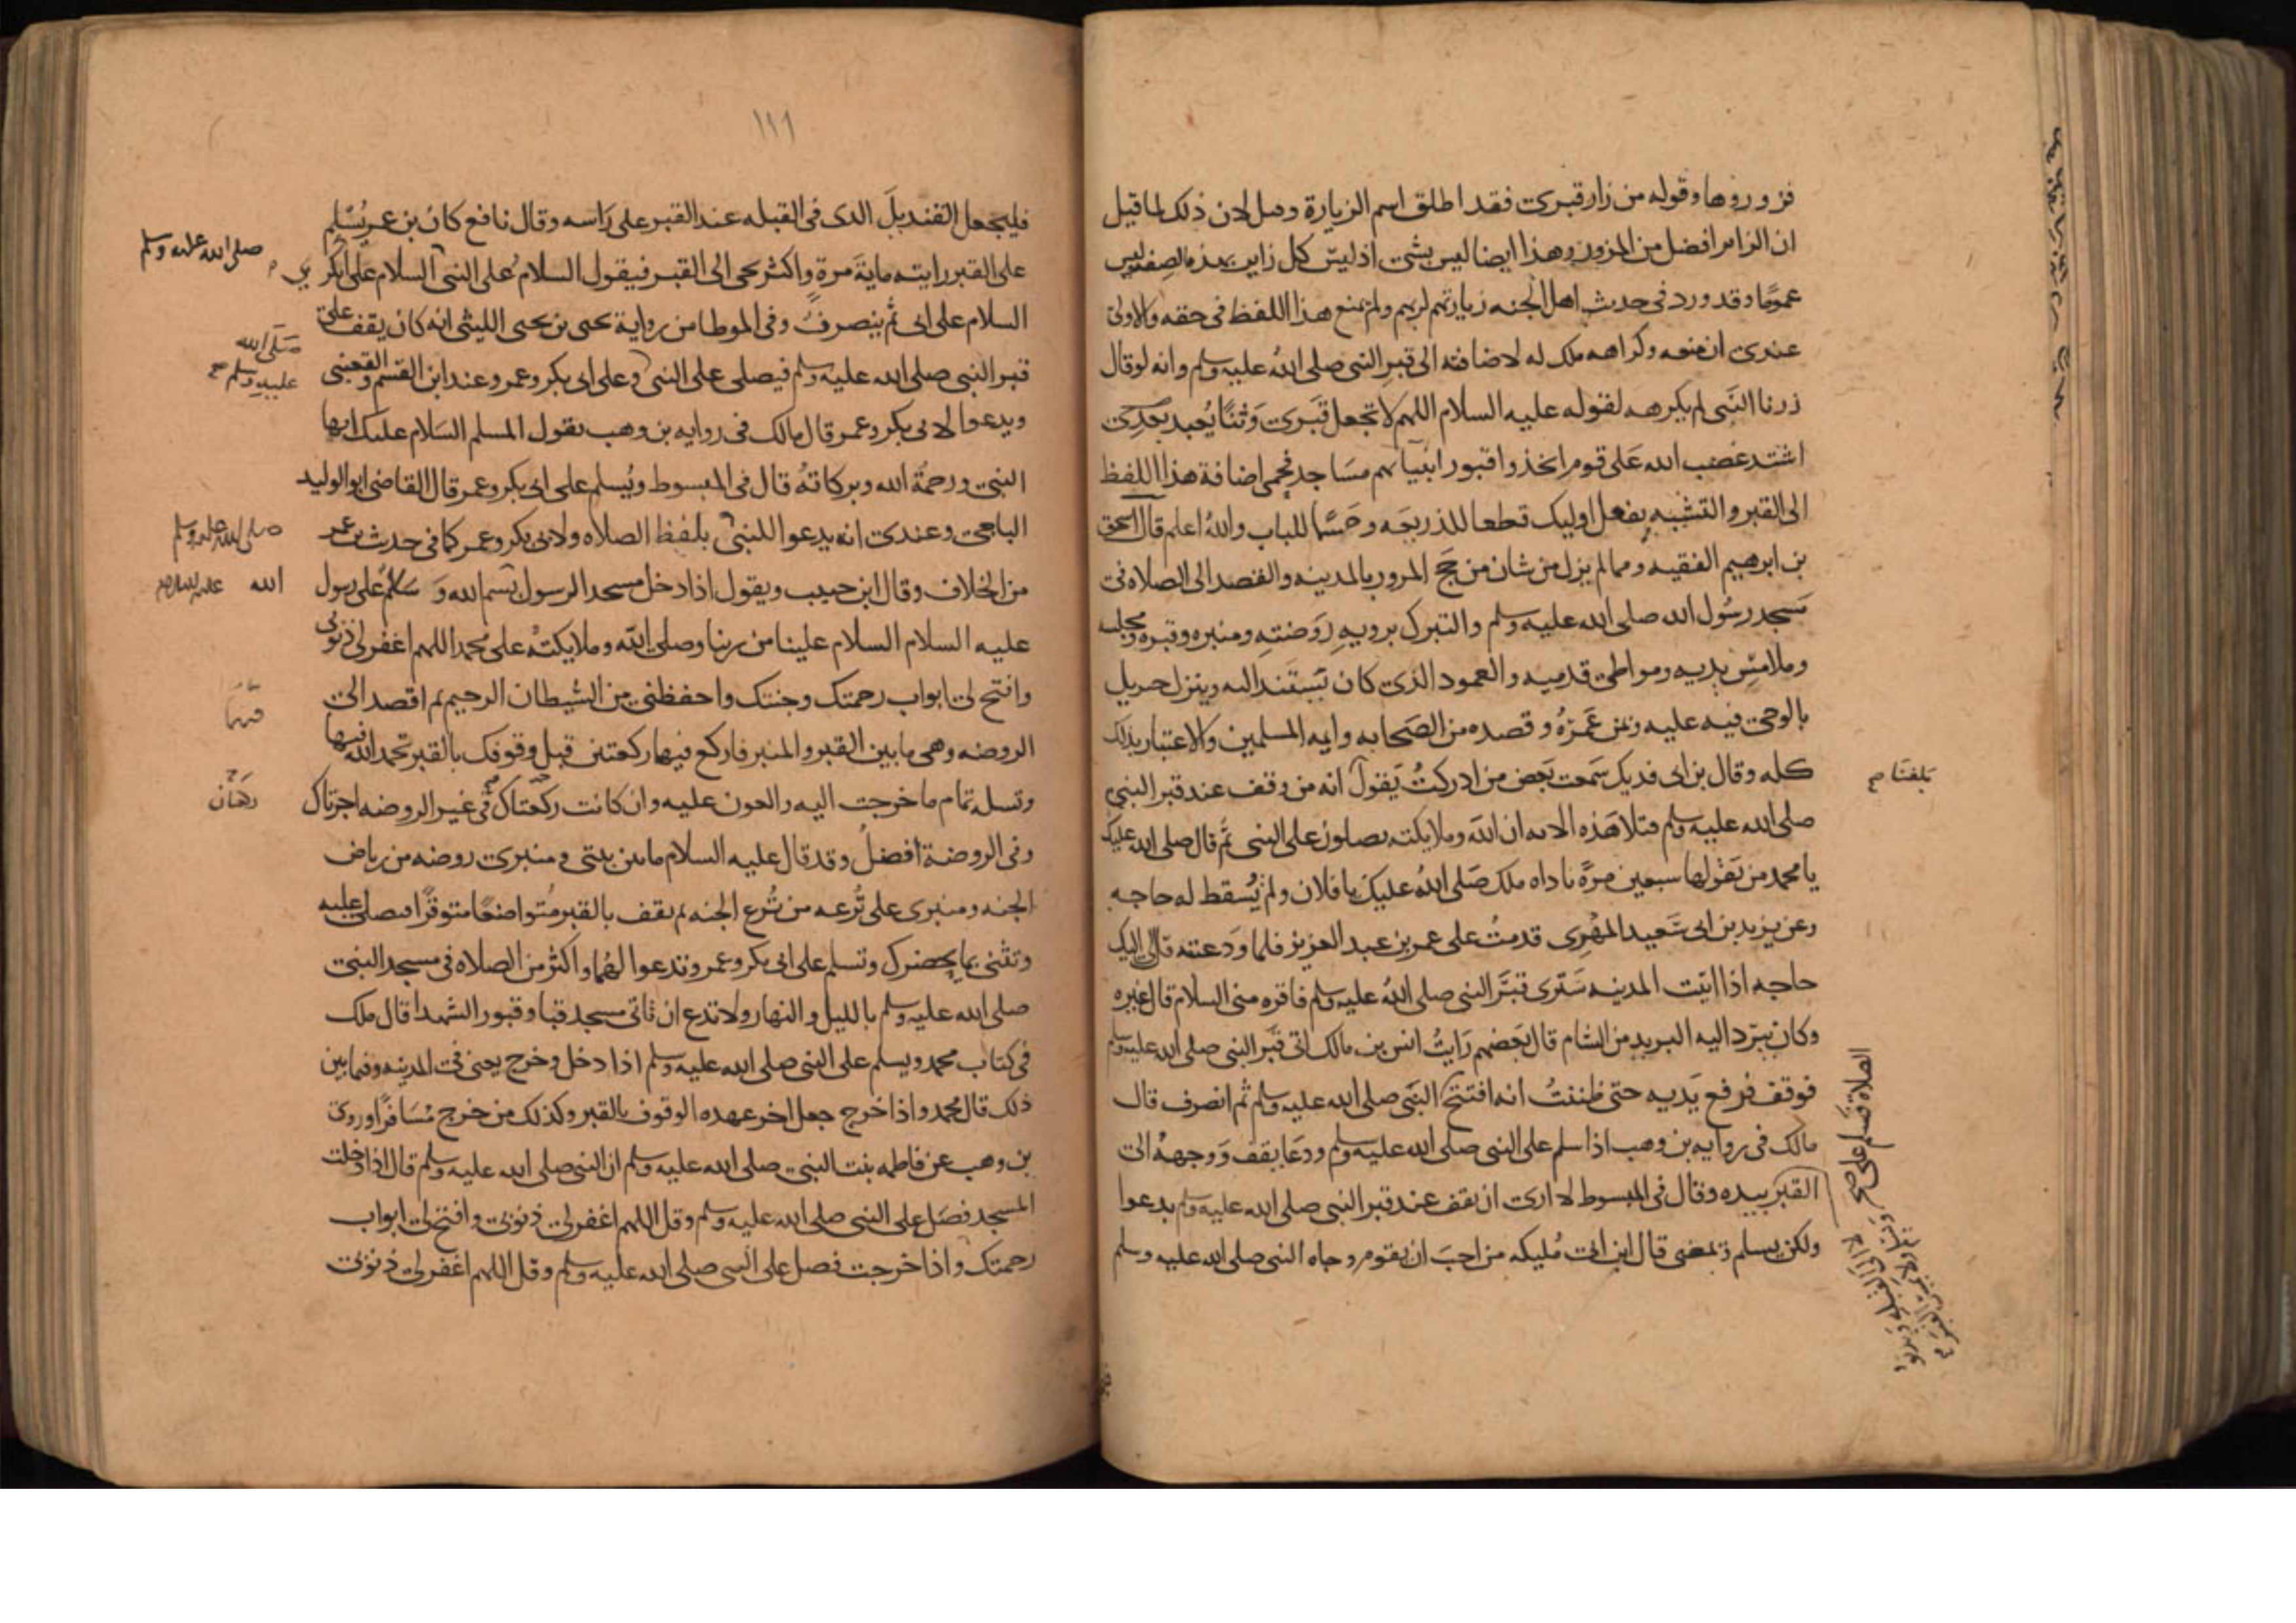 فزوروها وقوله من زار قبرى فقد اطلق اسم الزيارة وقيل لان ذلك لما قيل
ان الزاير افضل من المزور وهذا ايضا ليس بشى اذ ليس كل زاير بهذه الصفة ليس
عموما وقد ورد فى حديث اهل الجنه زيارتهم لربهم ولم يمنع هذا اللفظ فى حقه والاولى
عندى ان منعه وكراهه ملك له لاضافته الى قبر النبى صلى الله عليه وسلم وانه لو قال
زرنا النبى لم يكرهه لقوله عليه السلام اللهم لا تجعل قبرى وثنا يعبد بعدى
اشتد غضب الله على قوم اتخذوا قبور انبيايهم مساجد فحمى اضافة هذا اللفظ
الى القبر والتشبه بفعل اوليك قطعا للذريعه وحسما للباب والله اعلم قال اسحق
بن ابرهيم الفقيه ومما لم يزل من شان من حج المرور بالمدينه والقصد الى الصلاه فى
مسجد رسول الله صلى الله عليه وسلم والتبرك بروية روضته ومنبره وقبره ومجلسه
وملامس يديه ومواطى قدميه والعمود الذى كان يستند اليه وينزل جبريل
بالوحى فيه عليه ومن عمره وقصده من الصحابه وايمه المسلمين والاعتبار بذلك
كله وقال بن ابى فديك سمعت بعض من ادركت يقول انه من وقف عند قبر النبى
بلغنا
صلى الله عليه وسلم فتلا هذه الايه ان الله وملايكته يصلون على النبى ثم قال صلى الله عليك
يا محمد من يقولها سبعين مرة ناداه ملك صلى الله عليك يا فلان ولم يسقط له حاجه
وعن يزيد بن ابى سعيد المهرى قدمت على عمر بن عبد العزيز فلما ودعته قال لى اليك
حاجه اذا اتيت المدينه سترى قبر النبى صلى الله عليه وسلم فاقره منى السلام قال غيره
وكان يبرد اليه البريد من الشام قال بعضهم رايت انس بن مالك اتى قبر النبى صلى الله عليه وسلم
فوقف فرفع يديه حتى ظننت انه افتتح النبى صلى الله عليه وسلم ثم انصرف قال
الصلاة فسلم على صح
مالك فى روايه بن وهب اذا سلم على النبى صلى الله عليه وسلم ودعا يقف ووجهه الى
القبر بيده وقال فى المبسوط لا ارى ان يقف عند قبر النبى صلى الله عليه وسلم يدعوا
ولكن يسلم ويمضى قال ابن ابى مليكه من احب ان يقوم وجاه النبى صلى الله عليه وسلم
١١١
فليجعل القنديل الذى فى القبله عند القبر على راسه وقال نافع كان بن عمر يسلم
على القبر رايته ماية مرة واكثر يجى الى القبر فيقول السلام على النبى السلام على ابى بكر
صلى الله عليه وسلم
السلام على ابى ثم ينصرف وفى الموطا من رواية يحيى بن يحيى الليثى انه كان يقف على
قبر النبى صلى الله عليه وسلم فيصلى على النبى وعلى ابى بكر وعمر وعند ابن القسم والقعنبى
صلى الله
عليه وسلم
ويدعوا لابى بكر وعمر قال مالك فى روايه بن وهب يقول المسلم السلام عليك ايها
النبى ورحمة الله وبركاته قال فى المبسوط ويسلم على ابى بكر وعمر قال القاضى ابو الوليد
الباجى وعندى انه يدعوا للنبى بلفظ الصلاه ولابى بكر وعمر كما فى حديث بن عمر
صلى الله عليه وسلم
من الخلاف وقال ابن حبيب ويقول اذا دخل مسجد الرسول بسم الله وسلام على رسول
الله عليه السلام
عليه السلام السلام علينا من ربنا وصلى الله وملايكته على محمد اللهم اغفر لى ذنوبى
وافتح لى ابواب رحمتك وجنتك واحفظنى من الشيطان الرجيم ثم اقصد الى
الروضه وهى ما بين القبر والمنبر فاركع فيها ركعتين قبل وقوفك بالقبر تحمد الله فيها
وتسله تمام ما خرجت اليه والعون عليه وان كانت ركعتاك فى غير الروضه اجزتاك
وفى الروضة افضل وقد قال عليه السلام ما بين بيتى ومنبرى روضه من رياض
الجنه ومنبرى على ترعه من ترع الجنه ثم تقف بالقبر متواضعا متوقرا فتصلى عليه
وتثنى بما يحضرك وتسلم على ابى بكر وعمر وتدعوا لهما واكثر من الصلاه فى مسجد النبى
صلى الله عليه وسلم بالليل والنهار ولا تدع ان تاتى مسجد قبا وقبور الشهدا قال ملك
فى كتاب محمد ويسلم على النبى صلى الله عليه وسلم اذا دخل وخرج يعنى فى المدينه وفيما بين
ذلك قال محمد واذا خرج جعل اخر عهده الوقوف بالقبر وكذلك من خرج مسافرا وروى
بن وهب عن فاطمه بنت النبى صلى الله عليه وسلم ان النبى صلى الله عليه وسلم قال اذا دخلت
المسجد فصل على النبى صلى الله عليه وسلم وقل اللهم اغفر لى ذنوبى وافتح لى ابواب
رحمتك واذا خرجت فصل على النبى صلى الله عليه وسلم وقل اللهم اغفر لى ذنوبى